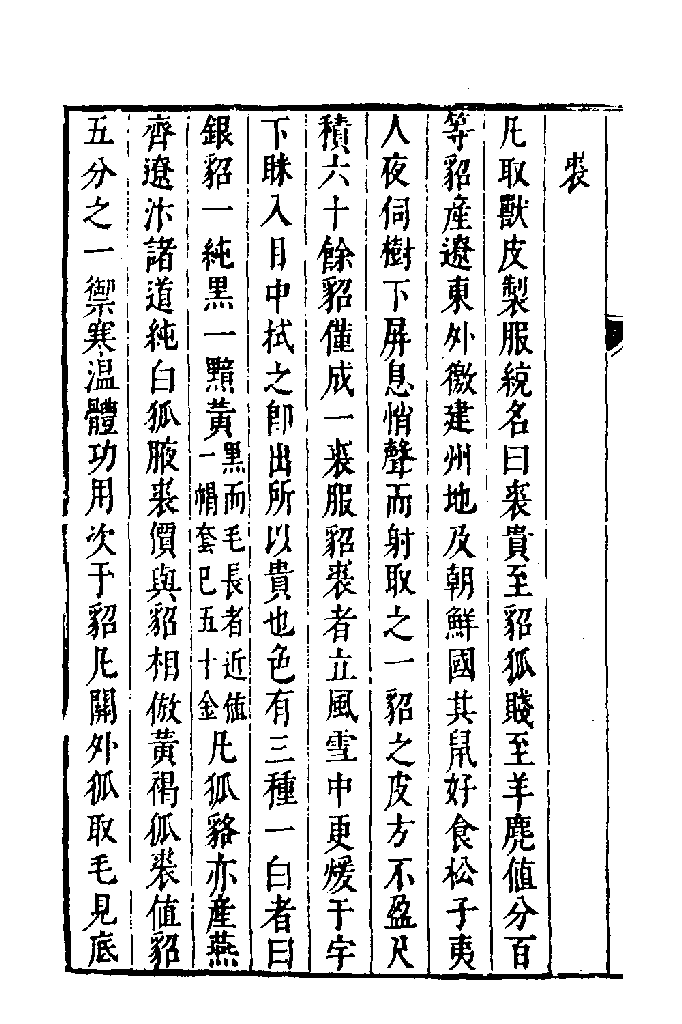 裘
凡取獸皮製服統名曰裘貴至貂狐賤至羊麂値分百
等貂產遼東外徼建州地及朝鮮國其鼠好食松子夷
人夜伺樹下屏息悄聲而射取之一貂之皮方不盈尺
積六十餘貂僅成一裘服貂裘者立風雪中更煖于宇
下眯入目中拭之卽出所以貴也色有三種一白者曰
銀貂一純黑一黯黃黑而毛長者近値一帽套已五十金凡狐貉亦產燕
齊遼汴諸道純白狐腋裘價與貂相倣黃褐狐裘値貂
五分之一禦寒温體功用次于貂凡關外狐取毛見底